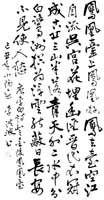 鳳凰臺上鳳凰遊鳳去臺空江
自流吳宮花草埋幽徑晉代衣冠
成古丘三山半落青天外二水中分
白鷺洲總為浮雲能蔽日長安
不見使人愁